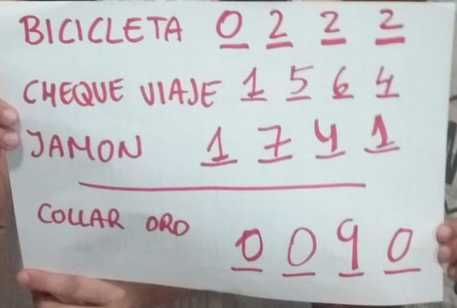 BICICLETA 0 2 2 2
CHEQUE VIAJE 1 5 6 4
JAMON 1 7 4 1
COLLAR ORO 0 0 9 0